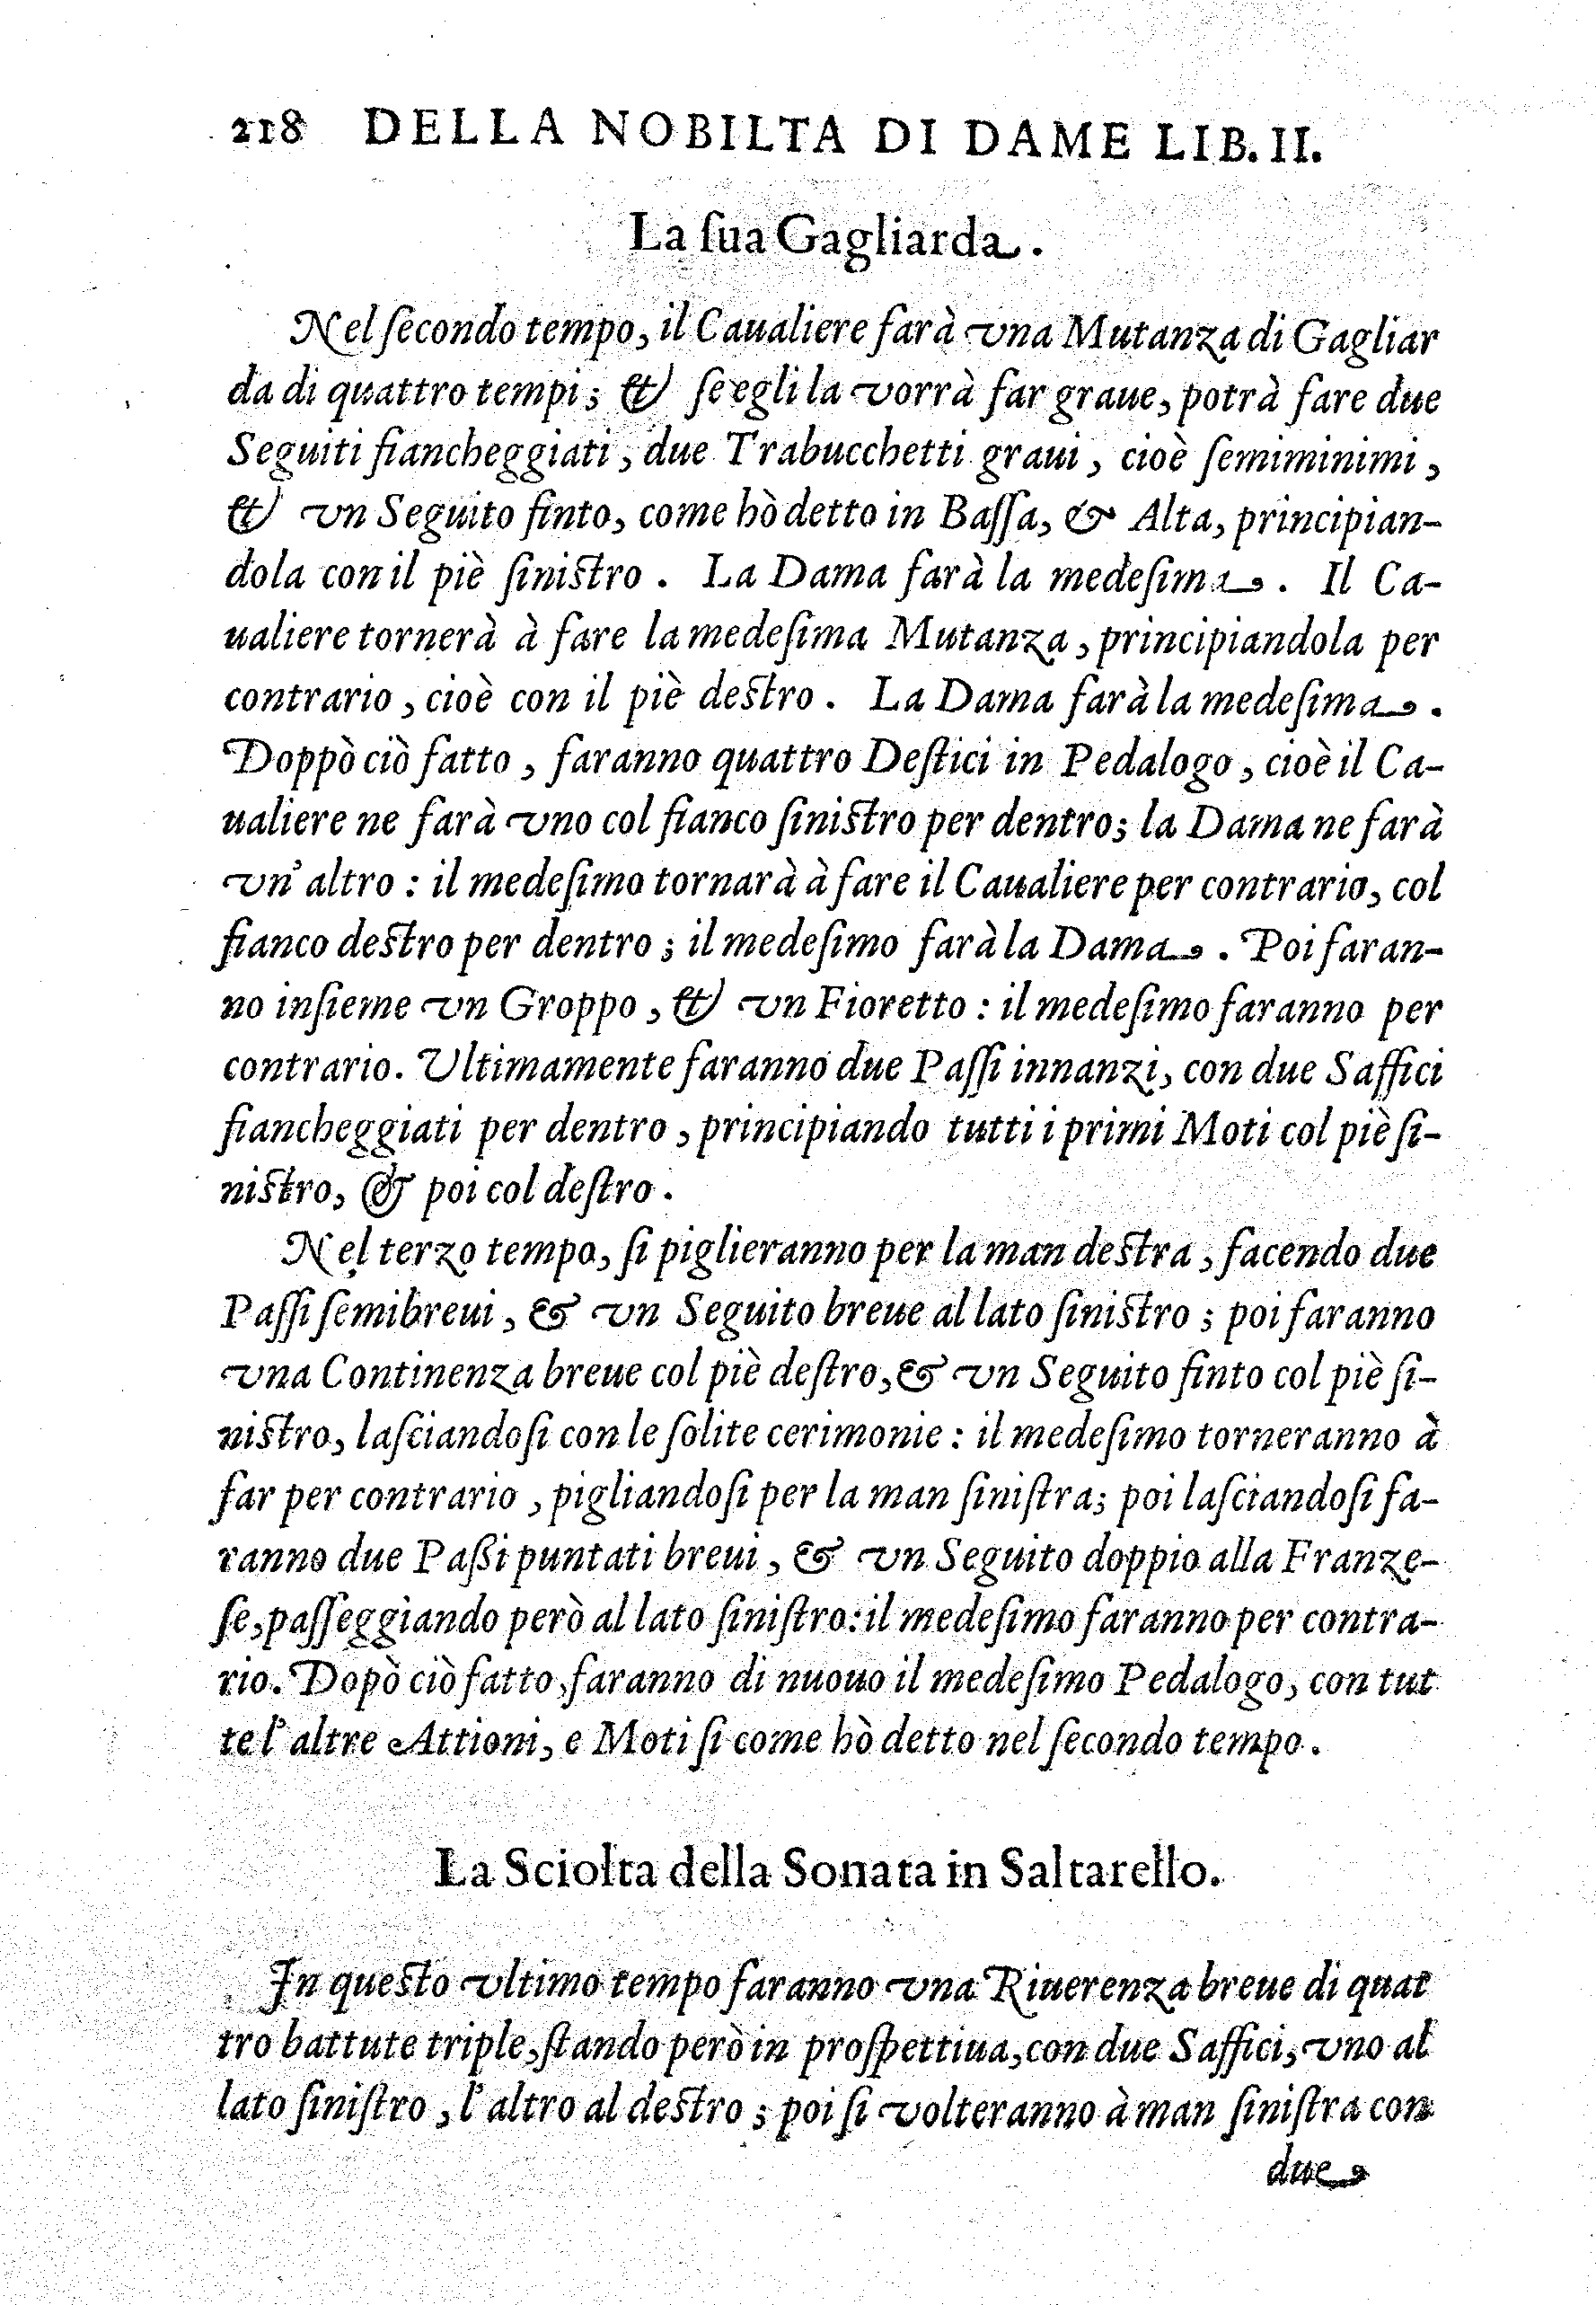 218 DELLA NOBILTA DI DAME LIB. II.
La ſua Gagliarda.
Nel ſecondo tempo, il Caualiere farà vna Mutanza di Gagliar
da di quattro tempi; & ſe egli la vorrà far graue, potrà fare due
Seguiti fiancheggiati, due Trabucchetti graui, cioè ſemiminimi,
& vn Seguito finto, come hò detto in Baſſa, & Alta, principian-
dola con il piè ſiniſtro. La Dama farà la medeſima. Il Ca-
ualiere tornerà à fare la medeſima Mutanza, principiandola per
contrario, cioè con il piè deſtro. La Dama farà la medeſima.
Doppò ciò fatto, faranno quattro Deſtici in Pedalogo, cioè il Ca-
ualiere ne farà vno col fianco ſiniſtro per dentro; la Dama ne farà
vn' altro: il medeſimo tornarà à fare il Caualiere per contrario, col
fianco deſtro per dentro; il medeſimo farà la Dama. Poi faran-
no inſieme vn Groppo, & vn Fioretto: il medeſimo faranno per
contrario. Vltimamente faranno due Paſſi innanzi, con due Saffici
fiancheggiati per dentro, principiando tutti i primi Moti col piè ſi-
niſtro, & poi col deſtro.
Nel terzo tempo, ſi piglieranno per la man deſtra, facendo due
Paſſi ſemibreui, & vn Seguito breue al lato ſiniſtro; poi faranno
vna Continenza breue col piè deſtro, & vn Seguito finto col piè ſi-
niſtro, laſciandoſi con le ſolite cerimonie: il medeſimo torneranno à
far per contrario, pigliandoſi per la man ſiniſtra; poi laſciandoſi fa-
ranno due Paßi puntati breui, & vn Seguito doppio alla Franze-
ſe, paſſeggiando però al lato ſiniſtro: il medeſimo faranno per contra-
rio. Dopò ciò fatto, faranno di nuouo il medeſimo Pedalogo, con tut
te l' altre Attioni, e Moti ſi come hò detto nel ſecondo tempo.
La Sciolta della Sonata in Saltarello.
In queſto vltimo tempo faranno vna Riuerenza breue di quat
tro battute triple, ſtando però in proſpettiua, con due Saffici, vno al
lato ſiniſtro, l' altro al deſtro; poi ſi volteranno à man ſiniſtra con
due